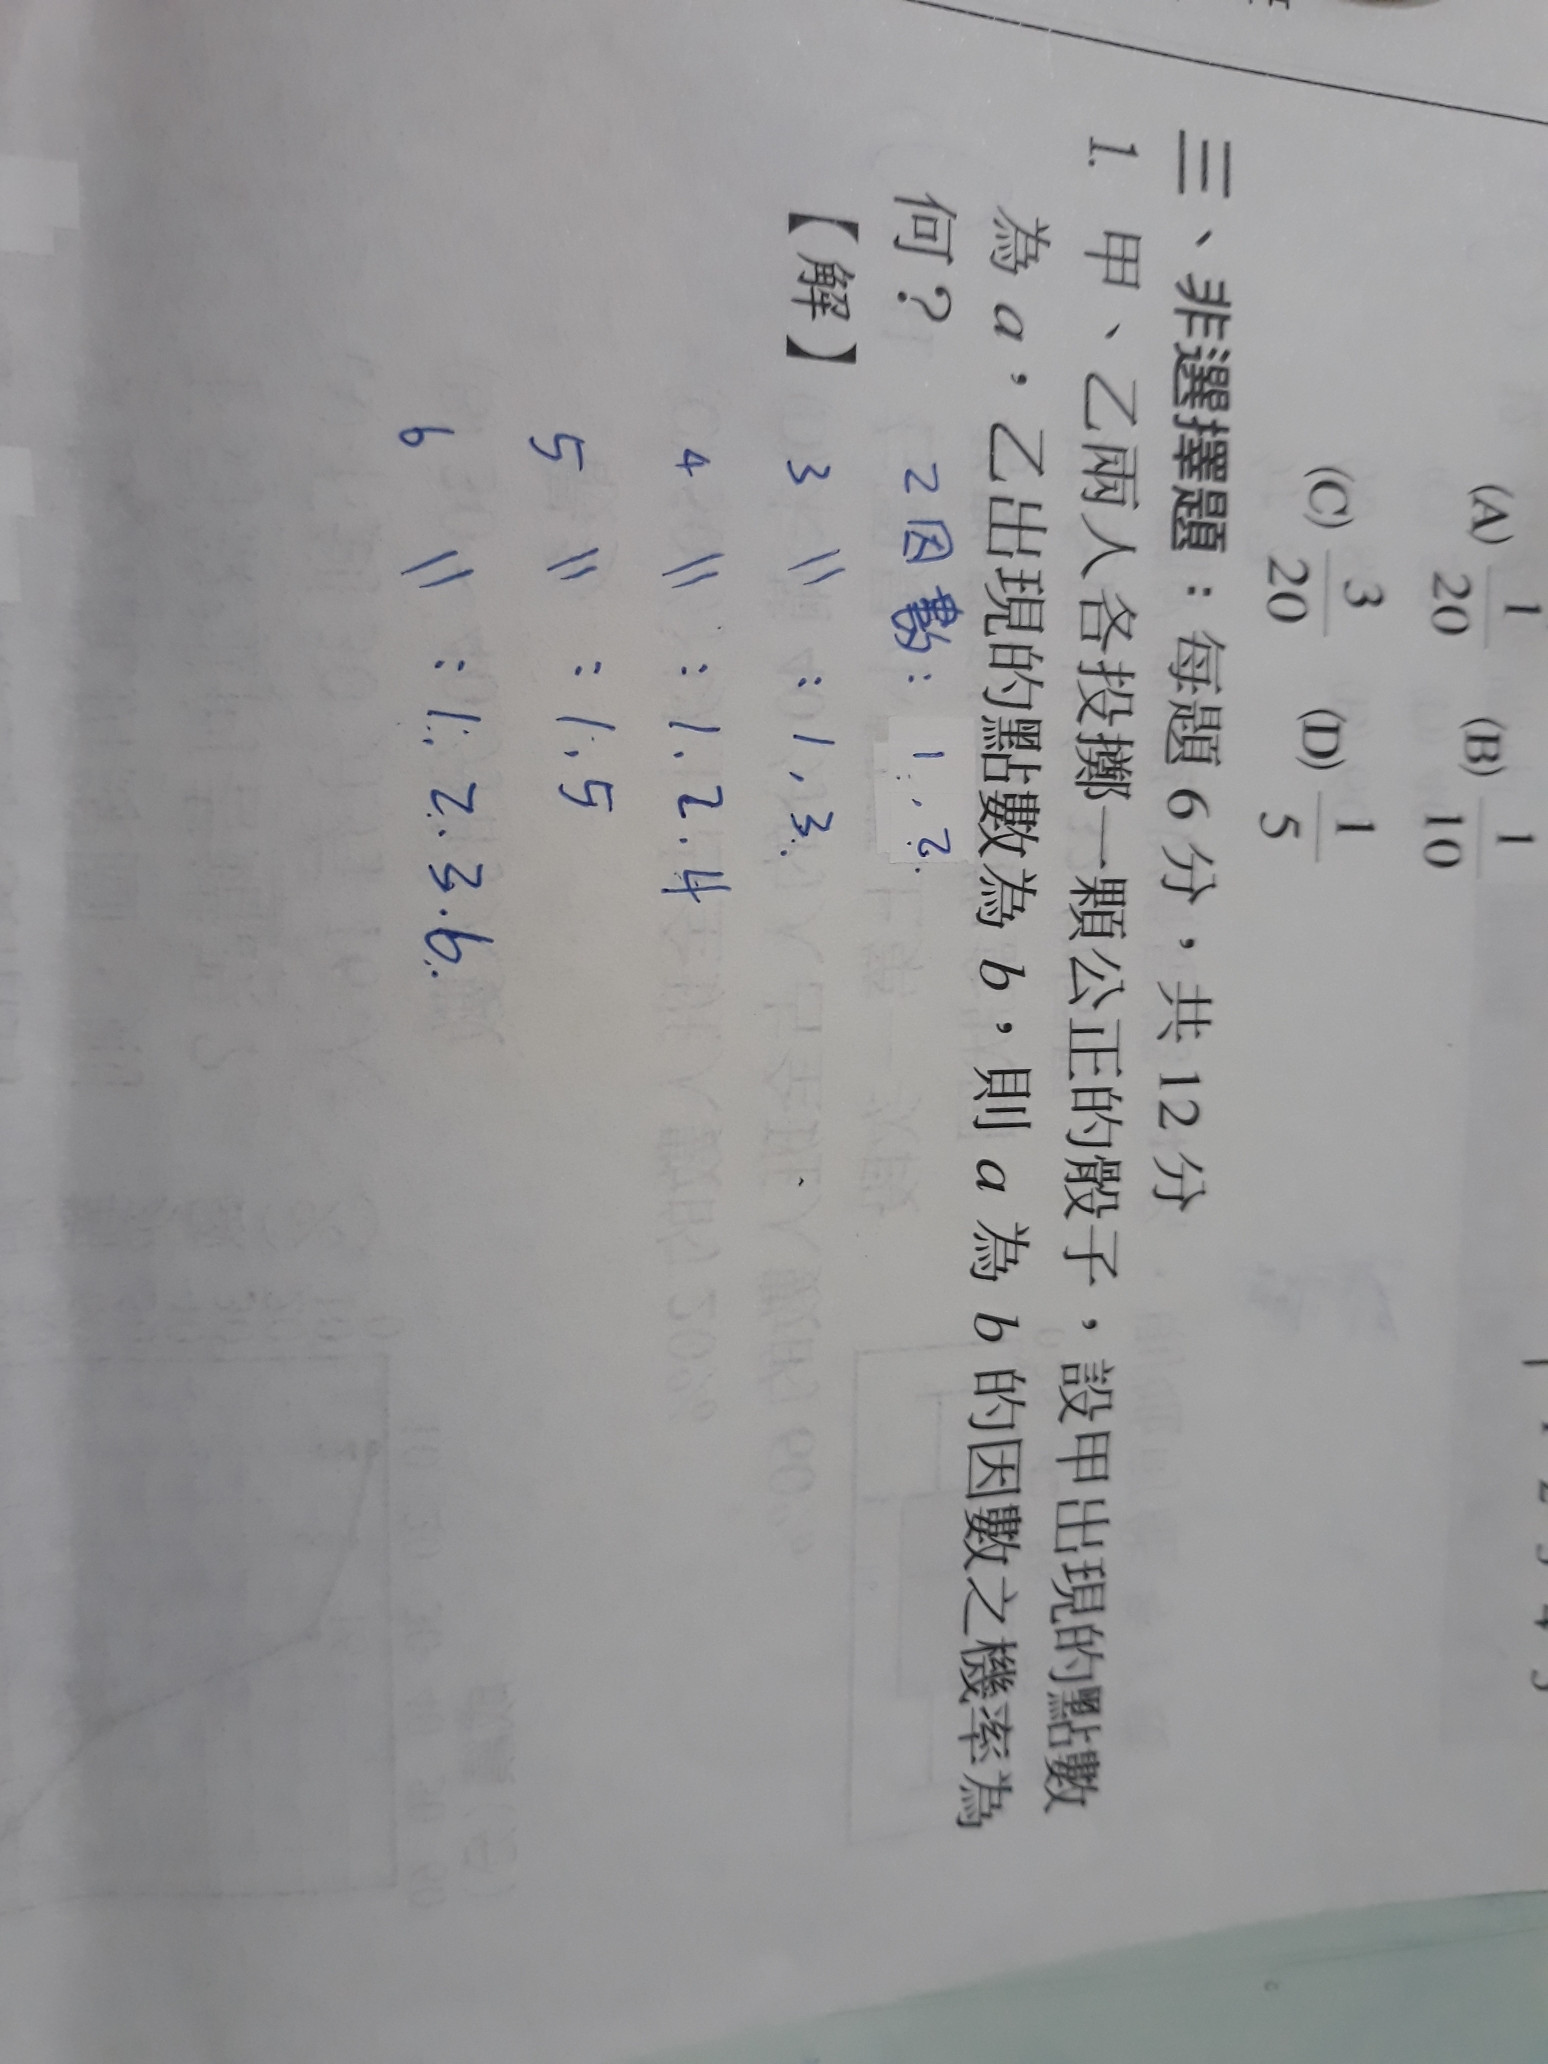 (A) 1/20 (B) 1/10
(C) 3/20 (D) 1/5
三、非選擇題：每題 6 分，共 12 分
1. 甲、乙兩人各投擲一顆公正的骰子，設甲出現的點數
為 a，乙出現的點數為 b，則 a 為 b 的因數之機率為
何？
【解】
2 因數：1, 2
3 〃 : 1, 3
4 〃 : 1. 2. 4
5 〃 : 1. 5
6 〃 : 1. 2. 3. 6